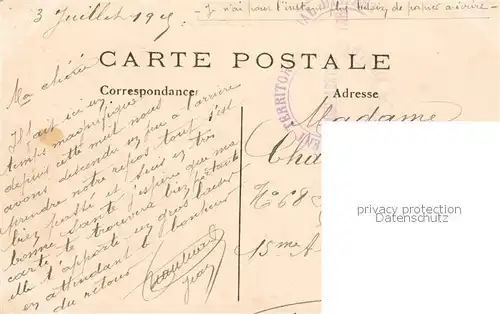 3 Juillet 1915
- Je n'ai pour l'instant plus besoin de papier à écrire -
CARTE POSTALE
Correspondance
Adresse
Ma chérie
Il fait ici un
temps magnifique
depuis cette nuit nous
avons descendu un peu à l'arrière
prendre notre repos tout s'est
bien passé et suis en très
bonne santé j'espère que ma
carte te trouvera bien portante
elle t'apporte un gros baiser
en attendant le bonheur
du retour
Jean
Madame
Cha
N° 68
15me A
TERRITOR
privacy protection
Datenschutz